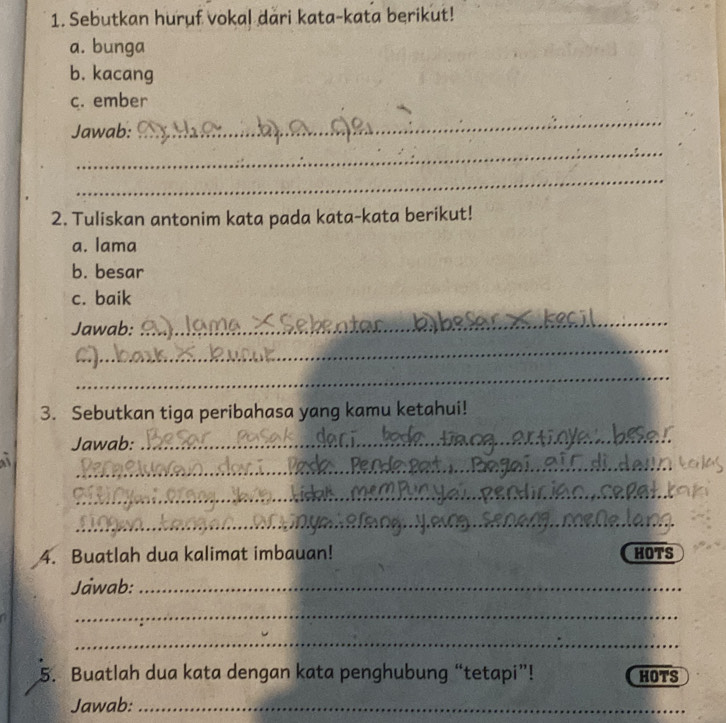 1. Sebutkan huruf vokal dari kata-kata berikut!
a. bunga
b. kacang
c. ember
Jawab: a) u, a b) a c) e
2. Tuliskan antonim kata pada kata-kata berikut!
a. lama
b. besar
c. baik
Jawab: a.) lama X Sebentar b) besar X kecil
c). baik X buruk
3. Sebutkan tiga peribahasa yang kamu ketahui!
Jawab: Besar Pasak dari pada tiang artinya: besar
Pengeluaran dari Pada Pendapat, Bagai air di daun talas
artinya: orang yang tidak mempunyai pendirian, cepat kaki
ringan tangan artinya: orang yang senang menolong.
4. Buatlah dua kalimat imbauan! HOTS
Jawab:
5. Buatlah dua kata dengan kata penghubung “tetapi”! HOTS
Jawab: